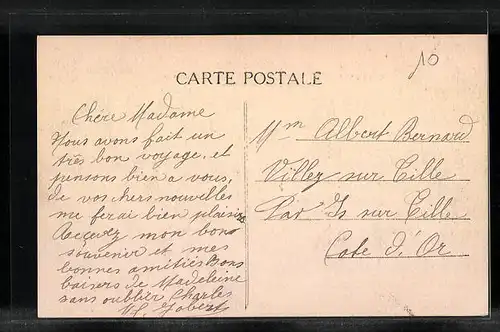 10
CARTE POSTALE
Chère Madame
Nous avons fait un
très bon voyage, et
pensons bien a vous,
de vos chers nouvelles
me ferai bien plaisir
Recevez mon bon
souvenir et mes
bonnes amitiés Bons
baisers de Madeleine
sans oublier Charles
Jobert
Mm Albert Bernard
Villey sur Tille
Par Is sur Tille
Cote d'Or